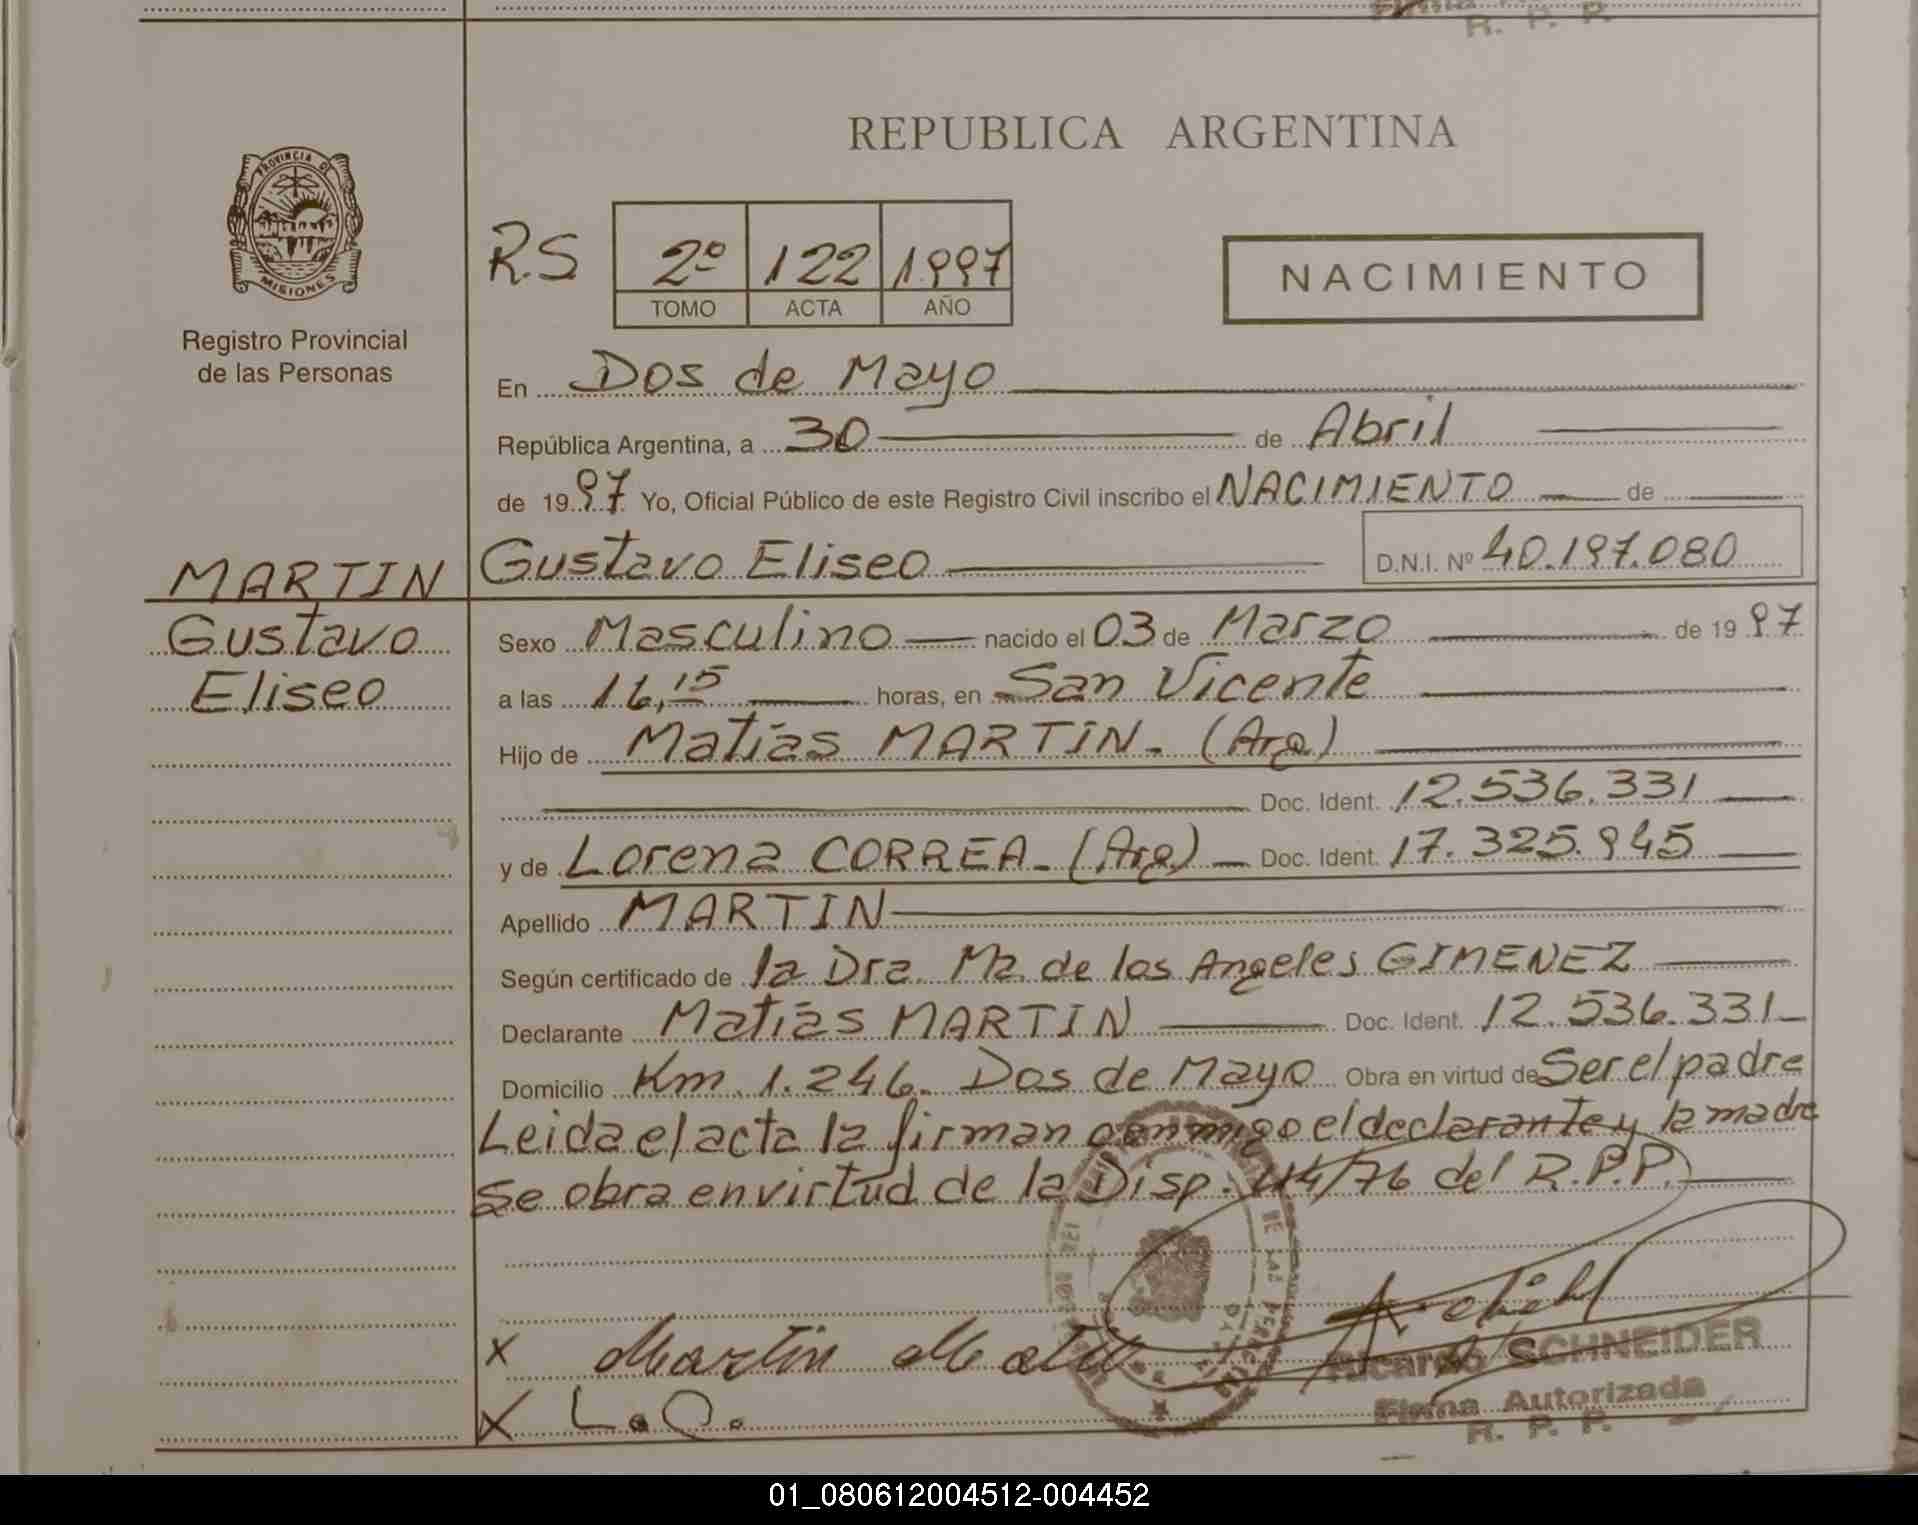 R. P. P.
PROVINCIA DE
MISIONES
Registro Provincial
de las Personas
REPUBLICA ARGENTINA
R.S 2º 122 1997
TOMO ACTA AÑO
NACIMIENTO
En Dos de Mayo
República Argentina, a 30 de Abril
de 1997 Yo, Oficial Público de este Registro Civil inscribo el NACIMIENTO de
Gustavo Eliseo D.N.I. Nº 40.197.080
MARTIN
Gustavo
Eliseo
Sexo Masculino nacido el 03 de Marzo de 1997
a las 16,15 horas, en San Vicente
Hijo de Matías MARTIN. (Arg)
Doc. Ident. 12.536.331
y de Lorena CORREA. (Arg) Doc. Ident. 17.325.945
Apellido MARTIN
Según certificado de la Dra. Ma. de los Angeles GIMENEZ
Declarante Matías MARTIN Doc. Ident. 12.536.331
Domicilio Km. 1.246. Dos de Mayo Obra en virtud de Ser el padre
Leida el acta la firman conmigo el declarante y la madre
Se obra en virtud de la Disp. 44/76 del R.P.P.
x Martin
x L.C.
Ricardo SCHNEIDER
Firma Autorizada
R. P. P.
01_080612004512-004452